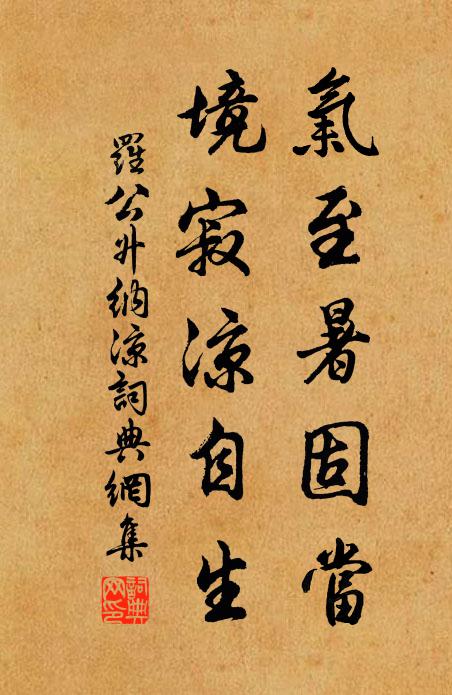 氣至暑固當
境寂涼自生
羅公升納涼詞典網集
詞典
网印